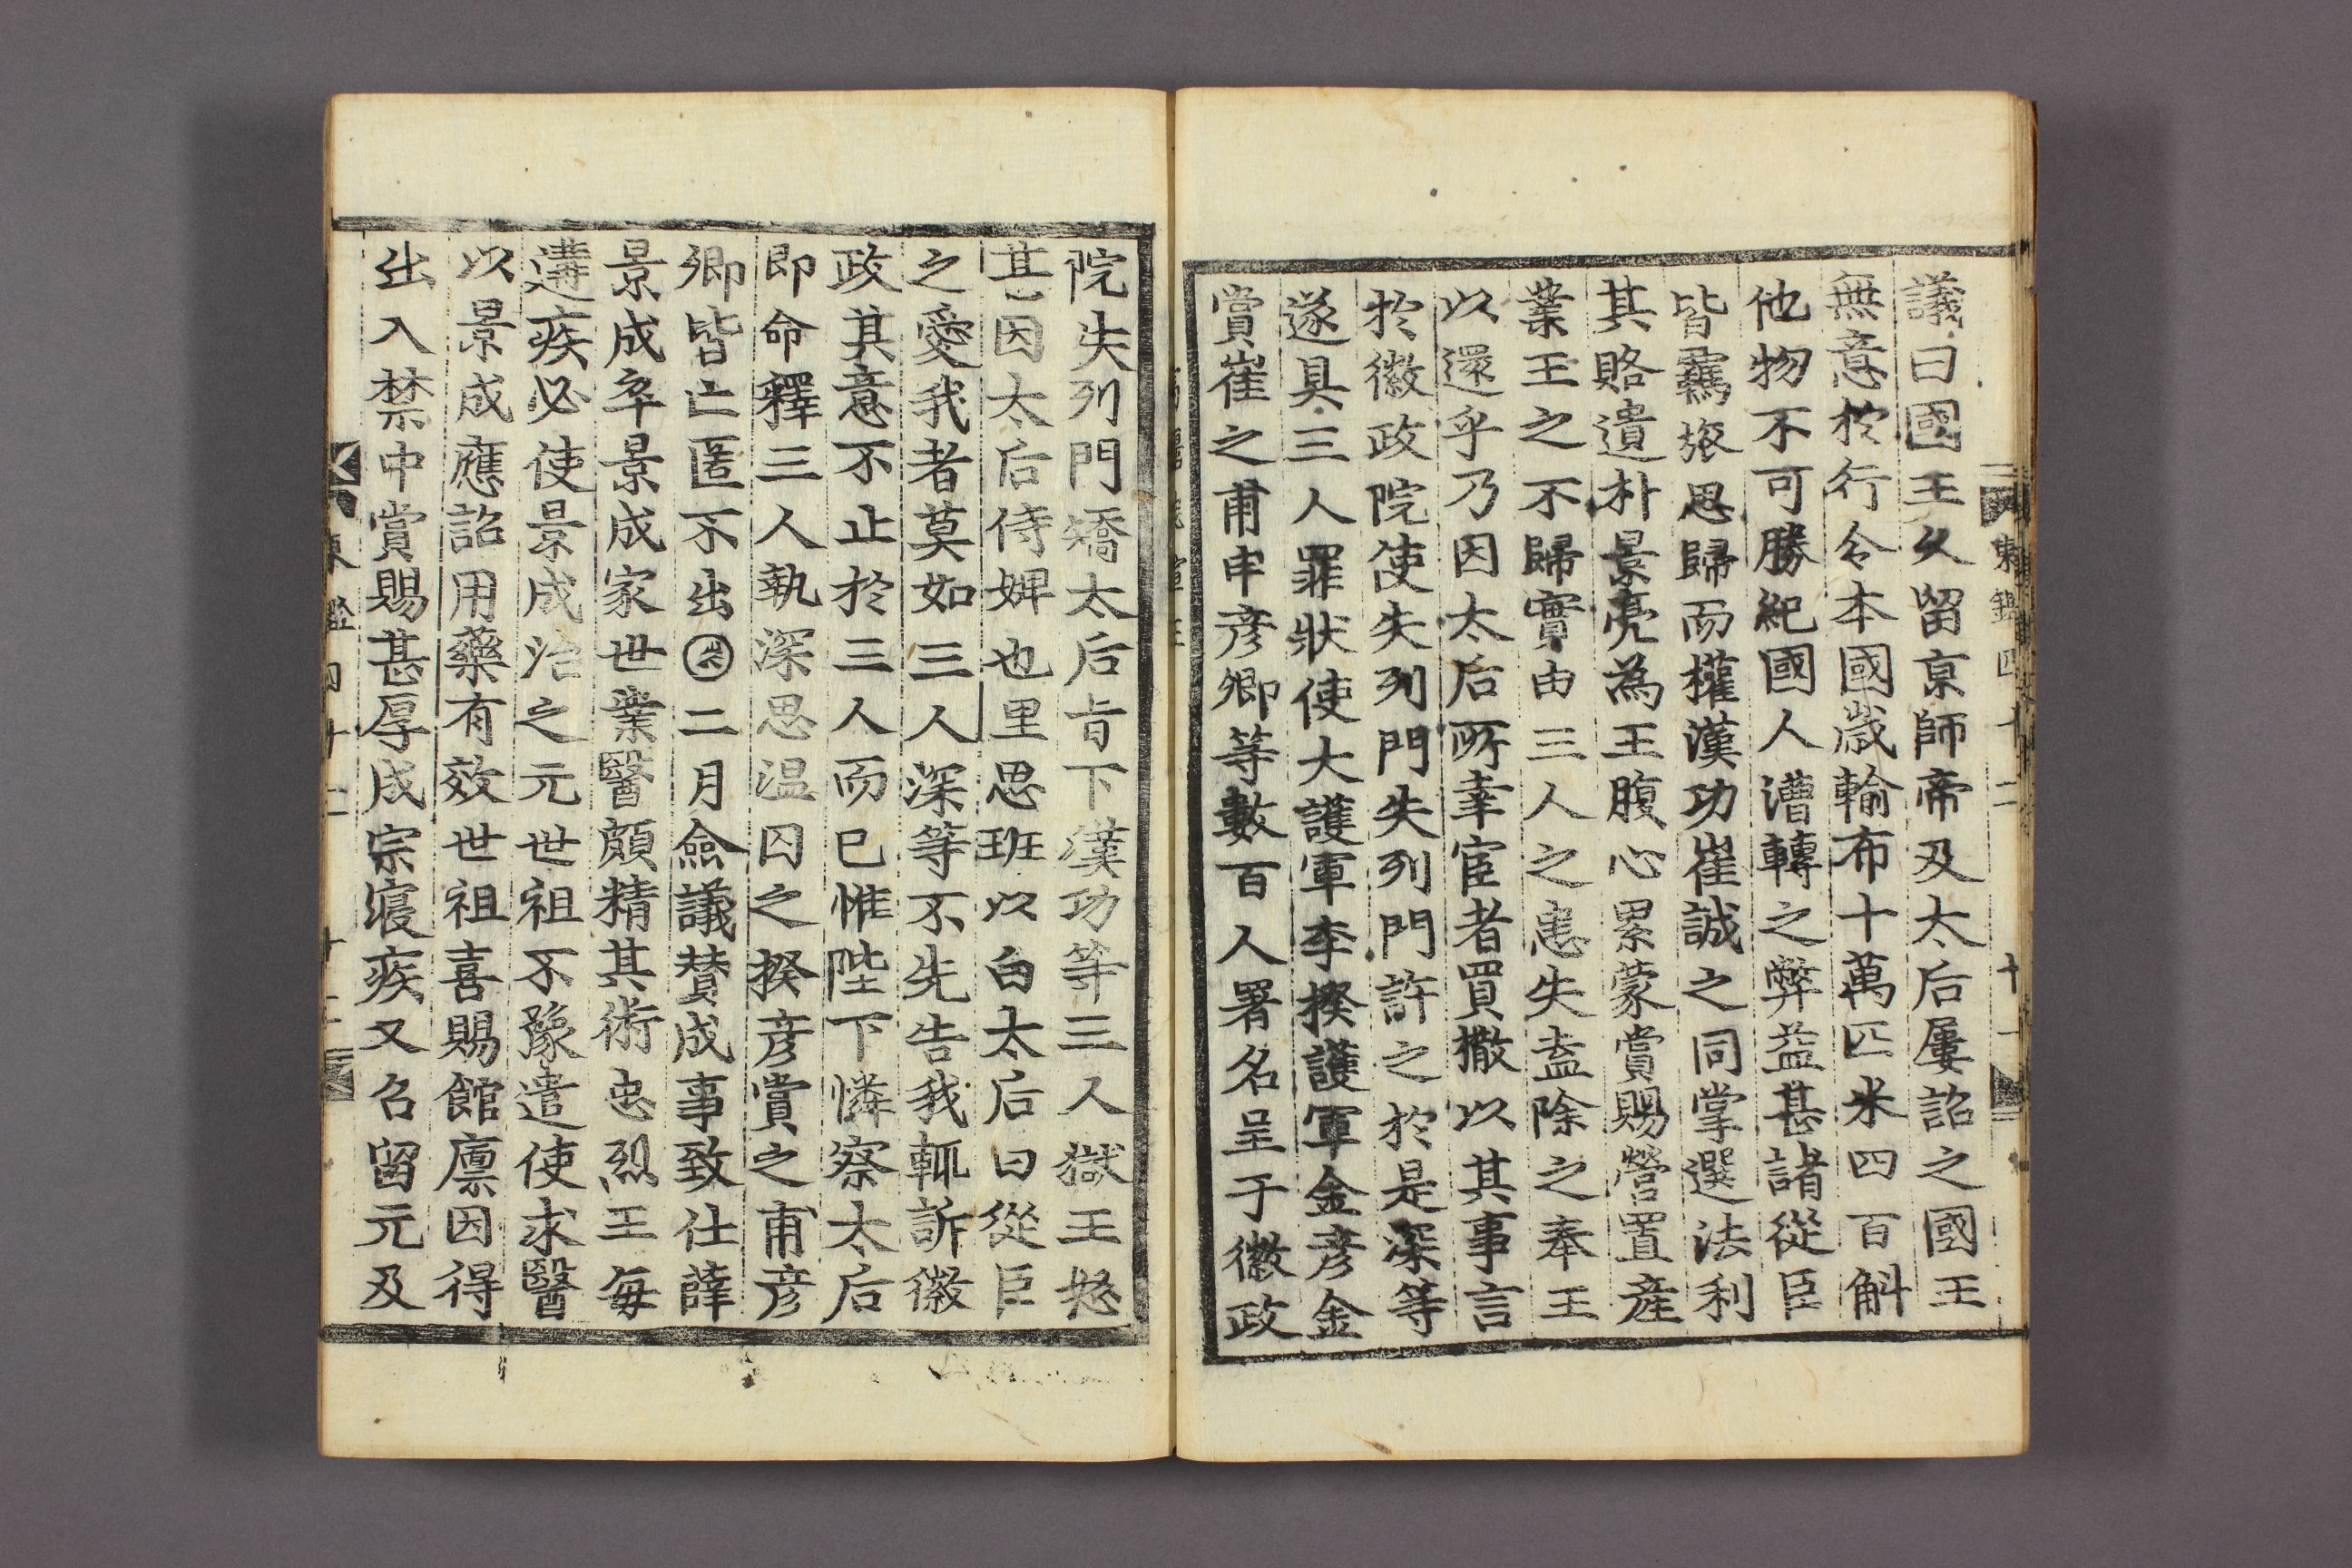 議曰國王久留京師帝及太后屢詔之國王
無意於行令本國歲輸布十萬匹米四百斛
他物不可勝紀國人漕轉之弊益甚諸從臣
皆羈旅思歸而權漢功崔誠之同掌選法利
其賂遺朴景亮為王腹心累蒙賞賜營置産
業王之不歸實由三人之恚失盍除之奉王
以還乎乃因太后所幸宦者買撒以其事言
於徽政院使失列門失列門許之於是深等
遂具三人罪狀使大護軍李揆護軍金彦金
賞崔之甫申彦卿等數百人署名呈于徽政
東鑑四十二 十一
院失列門矯太后旨下漢功等三人獄王怒
甚因太后侍婢也里思班以白太后曰從臣
之愛我者莫如三人深等不先告我輒訴徽
政其意不止於三人而已惟陛下憐察太后
即命釋三人執深思温囚之揆彦賞之甫彦
卿皆亡匿不出二月僉議賛成事致仕薛
景成卒景成家世業醫頗精其術忠烈王每
遘疾必使景成治之元世祖不豫遣使求醫
以景成應詔用藥有效世祖喜賜館廩因得
出入禁中賞賜甚厚成宗寢疾又召留元及